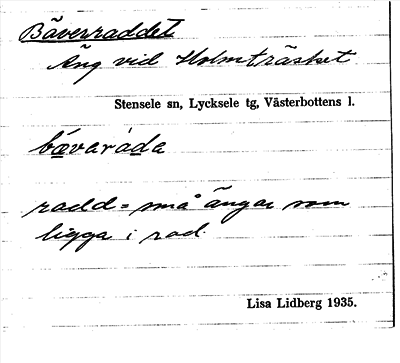 Bäverraddet
Äng vid Holmträsket
Stensele sn, Lycksele tg, Västerbottens l.
bǟvaràda
radd = små ängar som
ligga i rad.
Lisa Lidberg 1935.